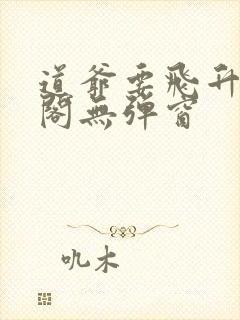 道爺要飛升
閣無彈窗
叽木